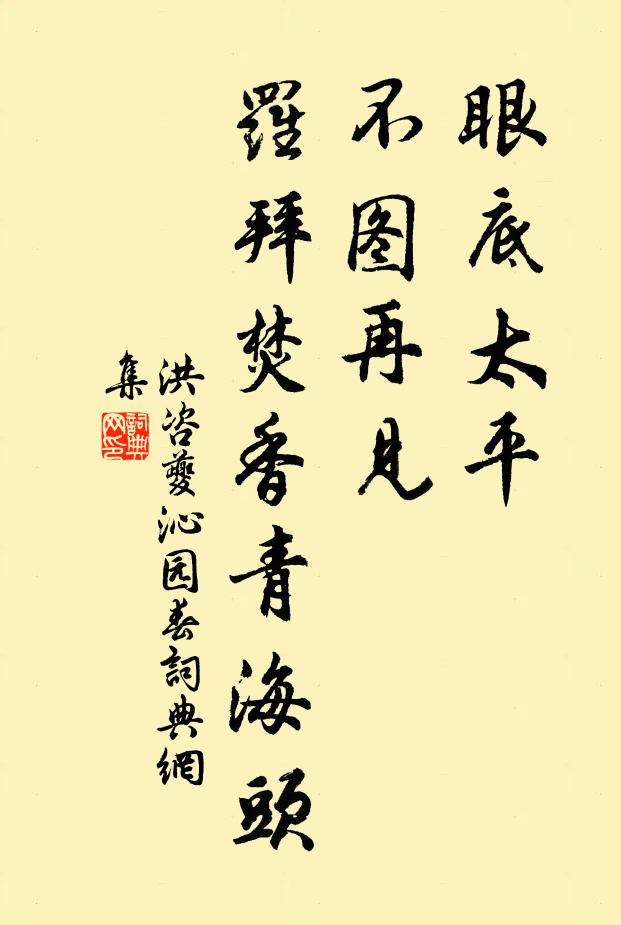 眼底太平
不图再见
羅拜焚香青海頭
洪咨夔沁园春詞典網
集
詞典网印